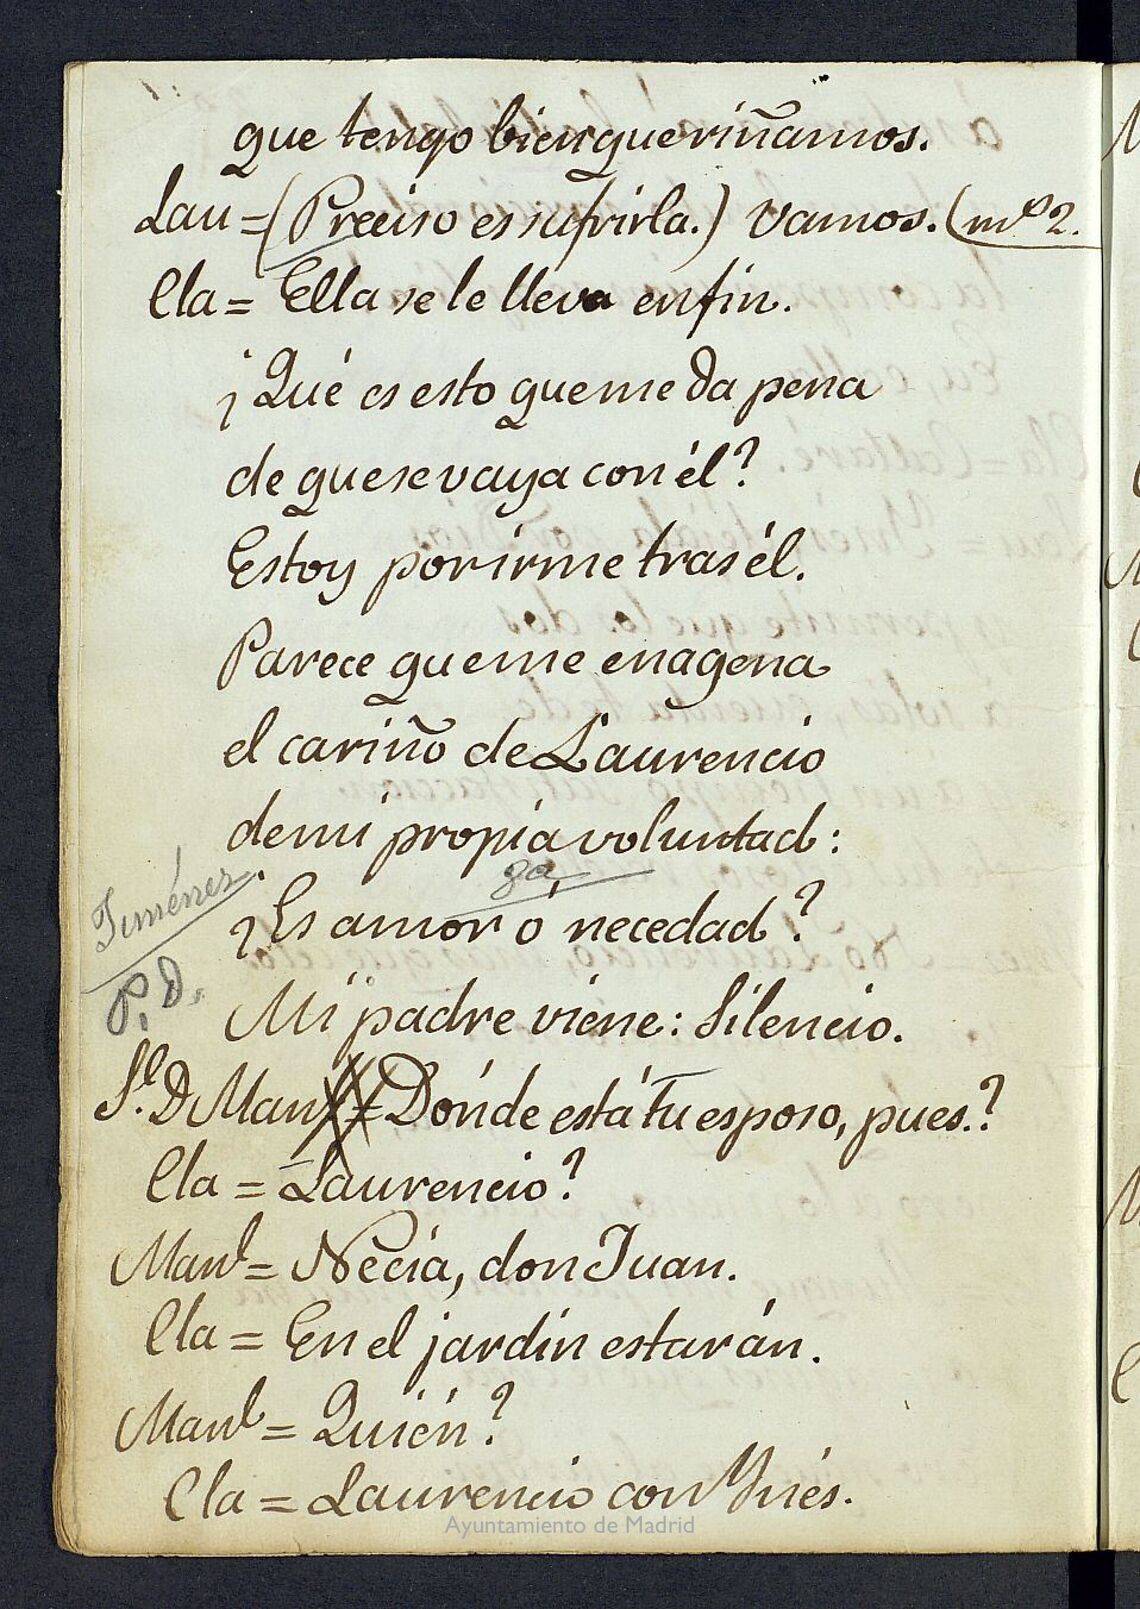 que tengo bien que riñamos.
Lau = (Preciso es sufrirla.) Vamos. (m.s 2.
Cla = Ella se le lleva en fin.
¿Qué es esto que me da pena
de que se vaya con él?
Estoy por irme tras él.
Parece que me enagena
el cariño de Laurencio
de mi propia voluntad:
8a
¿Es amor ó necedad?
Jiménez.
P. D.
Mi padre viene: Silencio.
S.l D Man = Dónde está tu esposo, pues.?
Cla = Laurencio?
Manl = Necia, don Juan.
Cla = En el jardín estarán.
Manl = Quién?
Cla = Laurencio con Ynés.
Ayuntamiento de Madrid